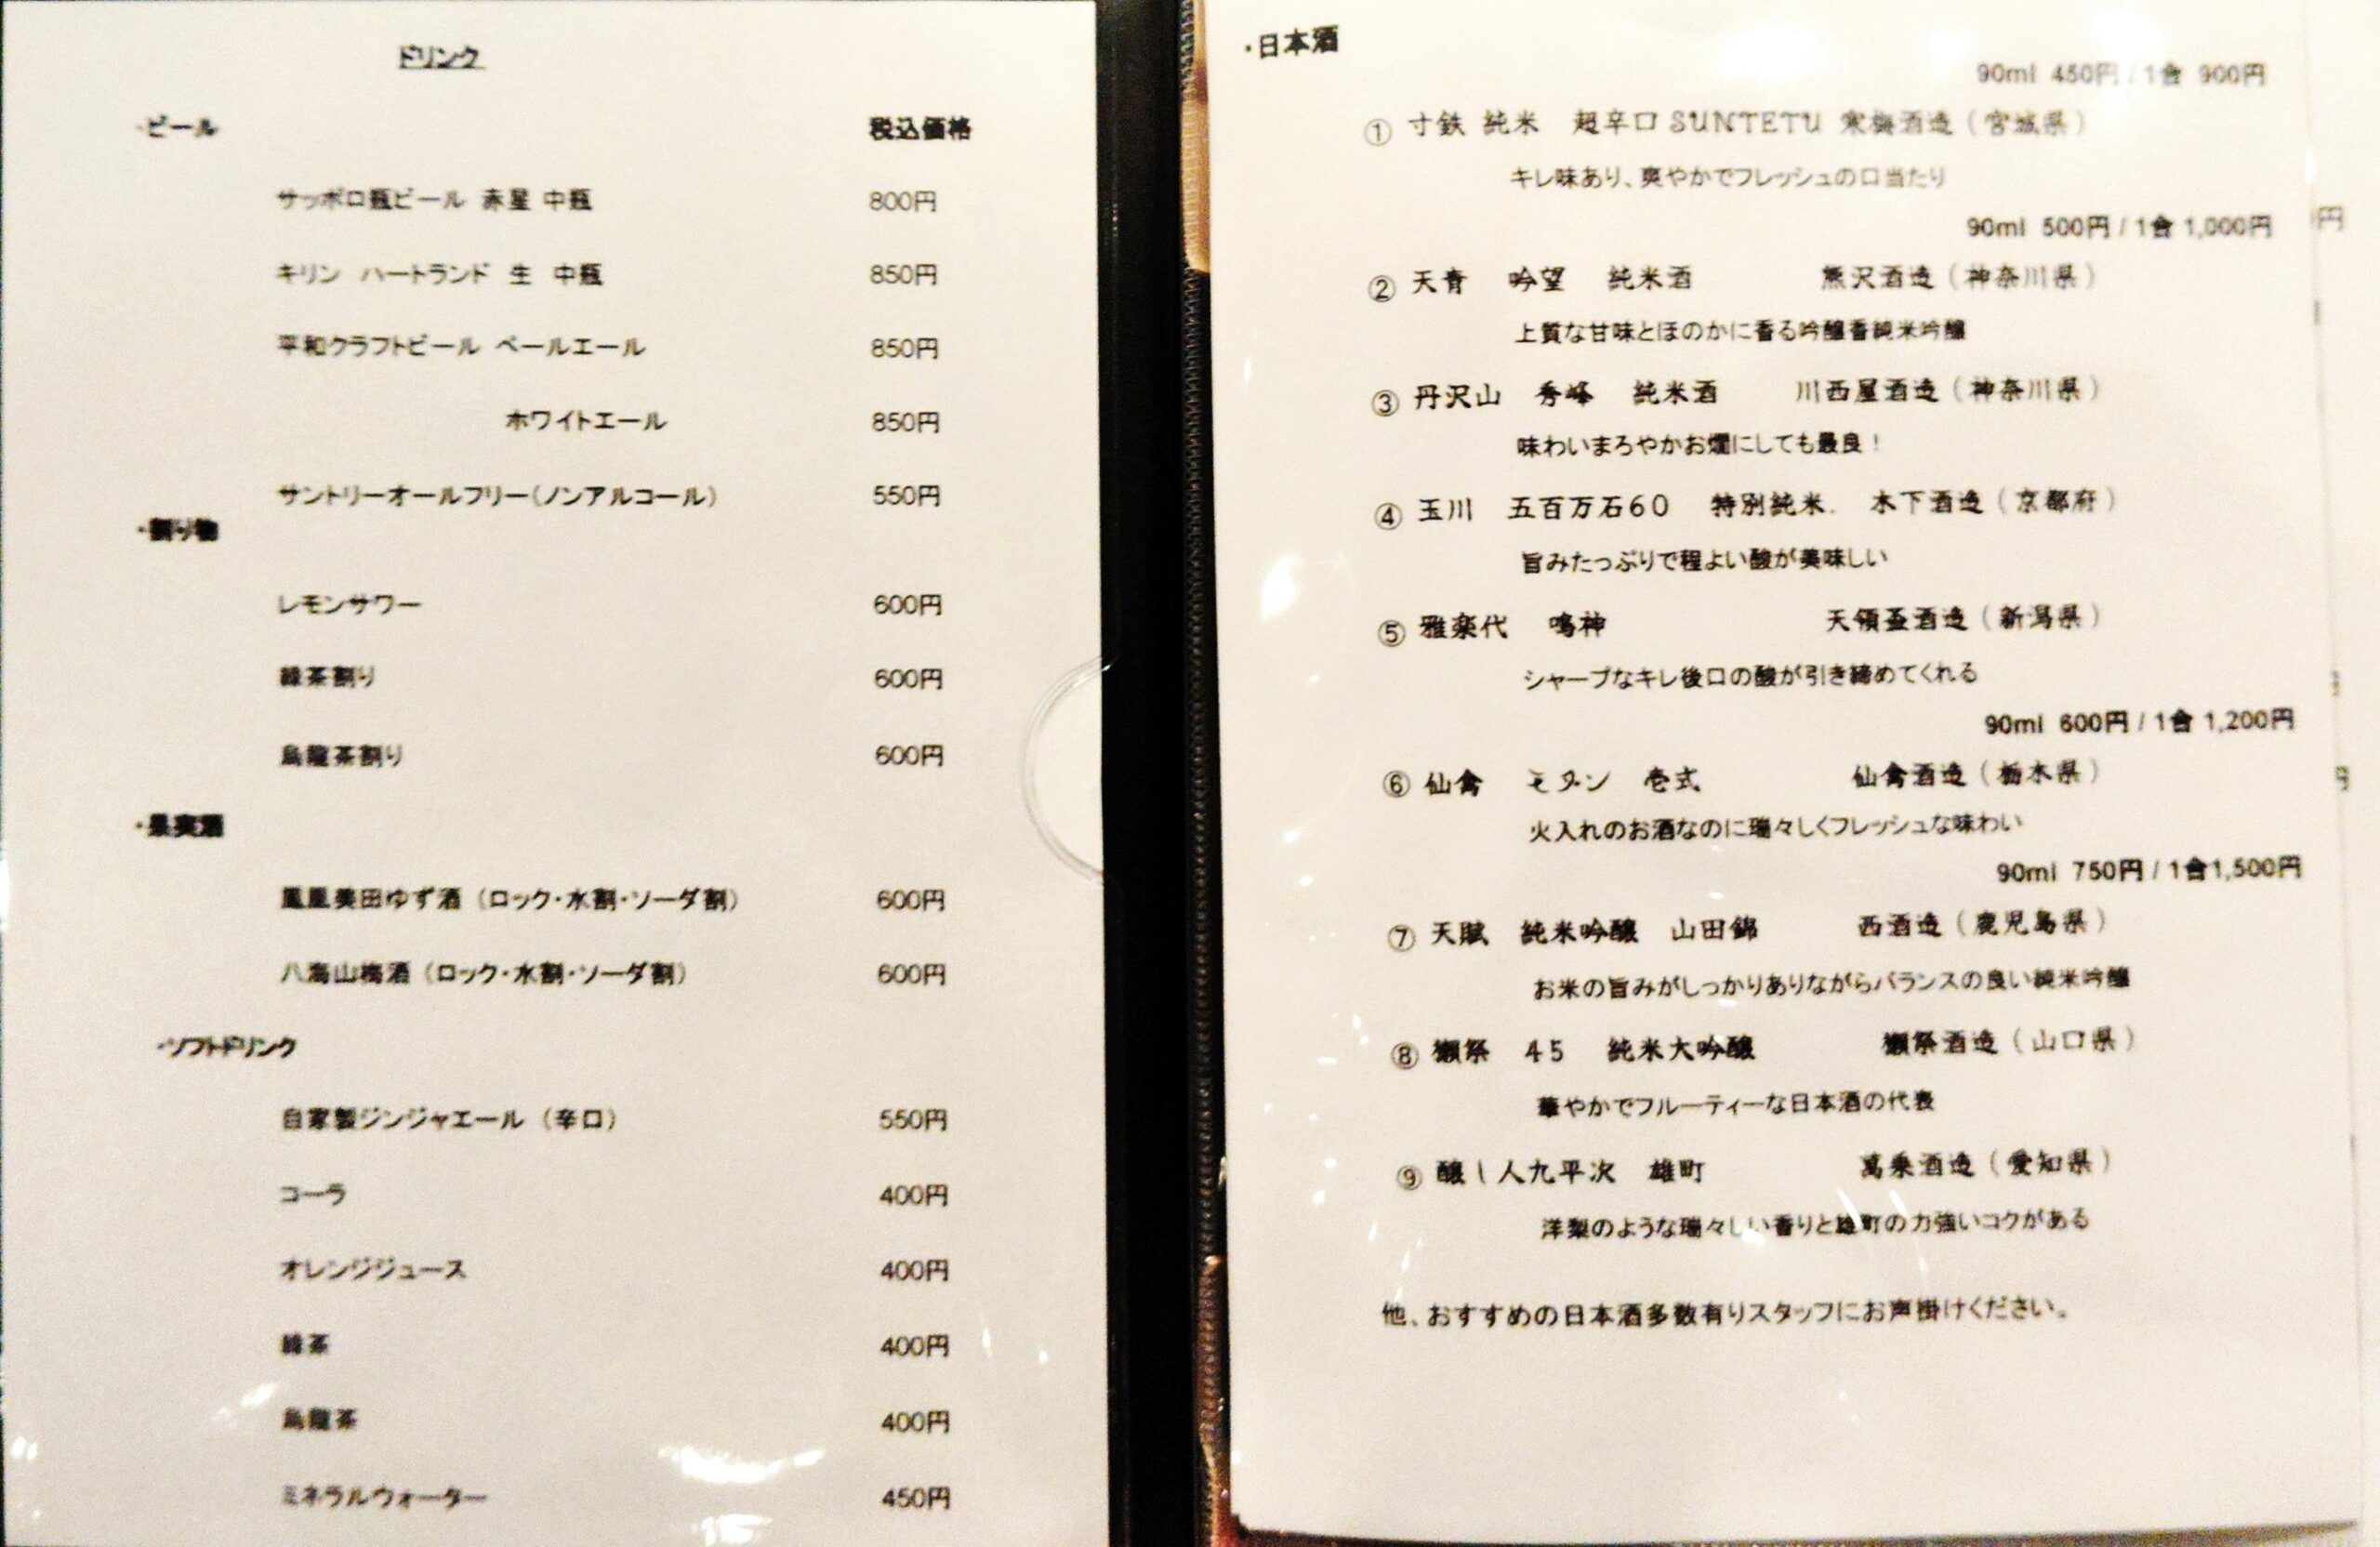 ドリンク
・ビール 税込価格
サッポロ瓶ビール 赤星 中瓶 800円
キリン ハートランド 生 中瓶 850円
平和クラフトビール ペールエール 850円
ホワイトエール 850円
サントリーオールフリー(ノンアルコール) 550円
・割り物
レモンサワー 600円
緑茶割り 600円
烏龍茶割り 600円
・果実酒
鳳凰美田ゆず酒 (ロック・水割・ソーダ割) 600円
八海山梅酒 (ロック・水割・ソーダ割) 600円
・ソフトドリンク
自家製ジンジャエール (辛口) 550円
コーラ 400円
オレンジジュース 400円
緑茶 400円
烏龍茶 400円
ミネラルウォーター 450円
・日本酒
90ml 450円 / 1合 900円
① 寸鉄 純米 超辛口 SUNTETU 寒梅酒造 (宮城県)
キレ味あり、爽やかでフレッシュの口当たり
90ml 500円 / 1合 1,000円
② 天青 吟望 純米酒 熊沢酒造 (神奈川県)
上質な甘味とほのかに香る吟醸香純米吟醸
③ 丹沢山 秀峰 純米酒 川西屋酒造 (神奈川県)
味わいまろやかお燗にしても最良!
④ 玉川 五百万石60 特別純米. 木下酒造 (京都府)
旨みたっぷりで程よい酸が美味しい
⑤ 雅楽代 鳴神 天領盃酒造 (新潟県)
シャープなキレ後口の酸が引き締めてくれる
90ml 600円 / 1合 1,200円
⑥ 仙禽 モダン 壱式 仙禽酒造 (栃木県)
火入れのお酒なのに瑞々しくフレッシュな味わい
90ml 750円 / 1合1,500円
⑦ 天賦 純米吟醸 山田錦 西酒造 (鹿児島県)
お米の旨みがしっかりありながらバランスの良い純米吟醸
⑧ 獺祭 45 純米大吟醸 獺祭酒造 (山口県)
華やかでフルーティーな日本酒の代表
⑨ 醸し人九平次 雄町 萬乗酒造 (愛知県)
洋梨のような瑞々しい香りと雄町の力強いコクがある
他、おすすめの日本酒多数有りスタッフにお声掛けください。